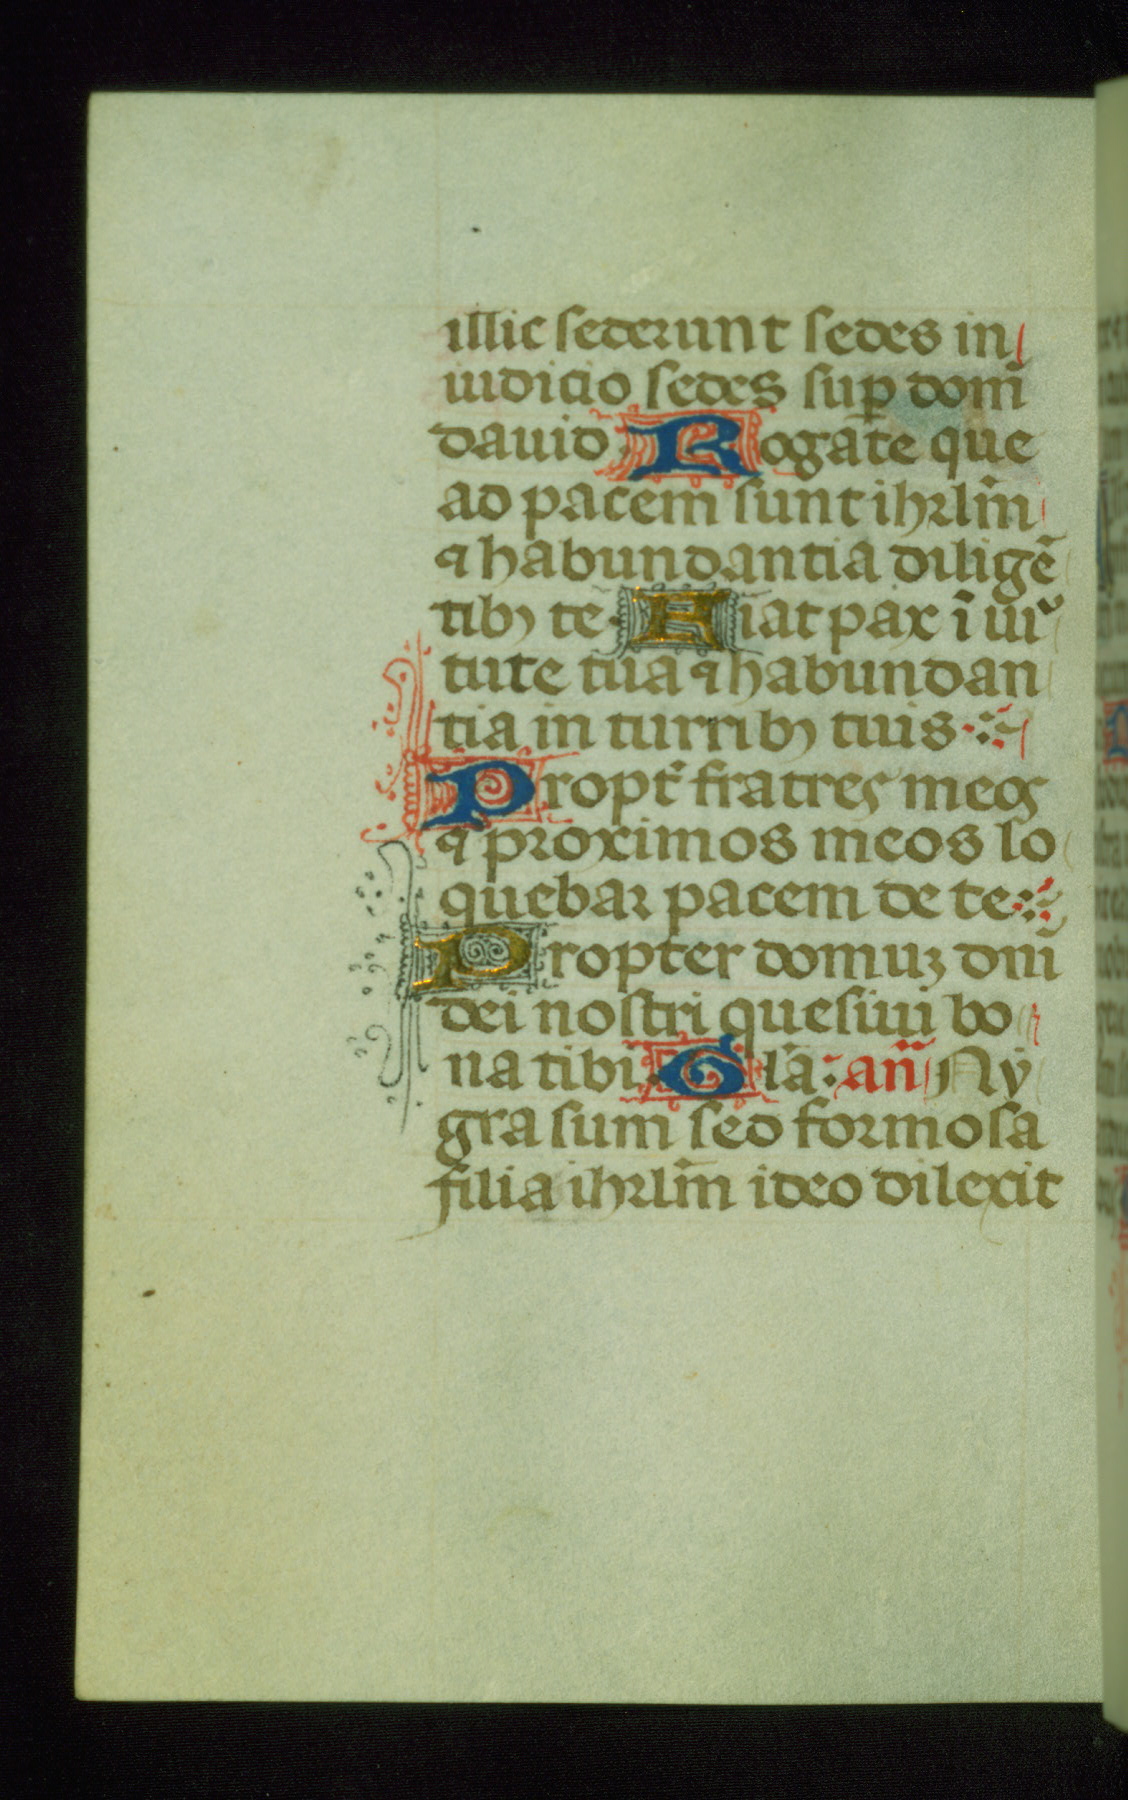 illic sederunt sedes in
iudicio sedes sup dom̄
dauid Rogate que
ad pacem sunt ihrlm̄
⁊ habundantia diligē
tibꝫ te Fiat pax ī uir
tute tua ⁊ habundan
tia in turribꝫ tuis
Propt̄ fratres meos
⁊ proximos meos lo
quebar pacem de te
Propter domuꝫ dnī
dei nostri quesiui bo
na tibi Glā an̄ Ny
gra sum sed formosa
filia ihrlm̄ ideo dilexit